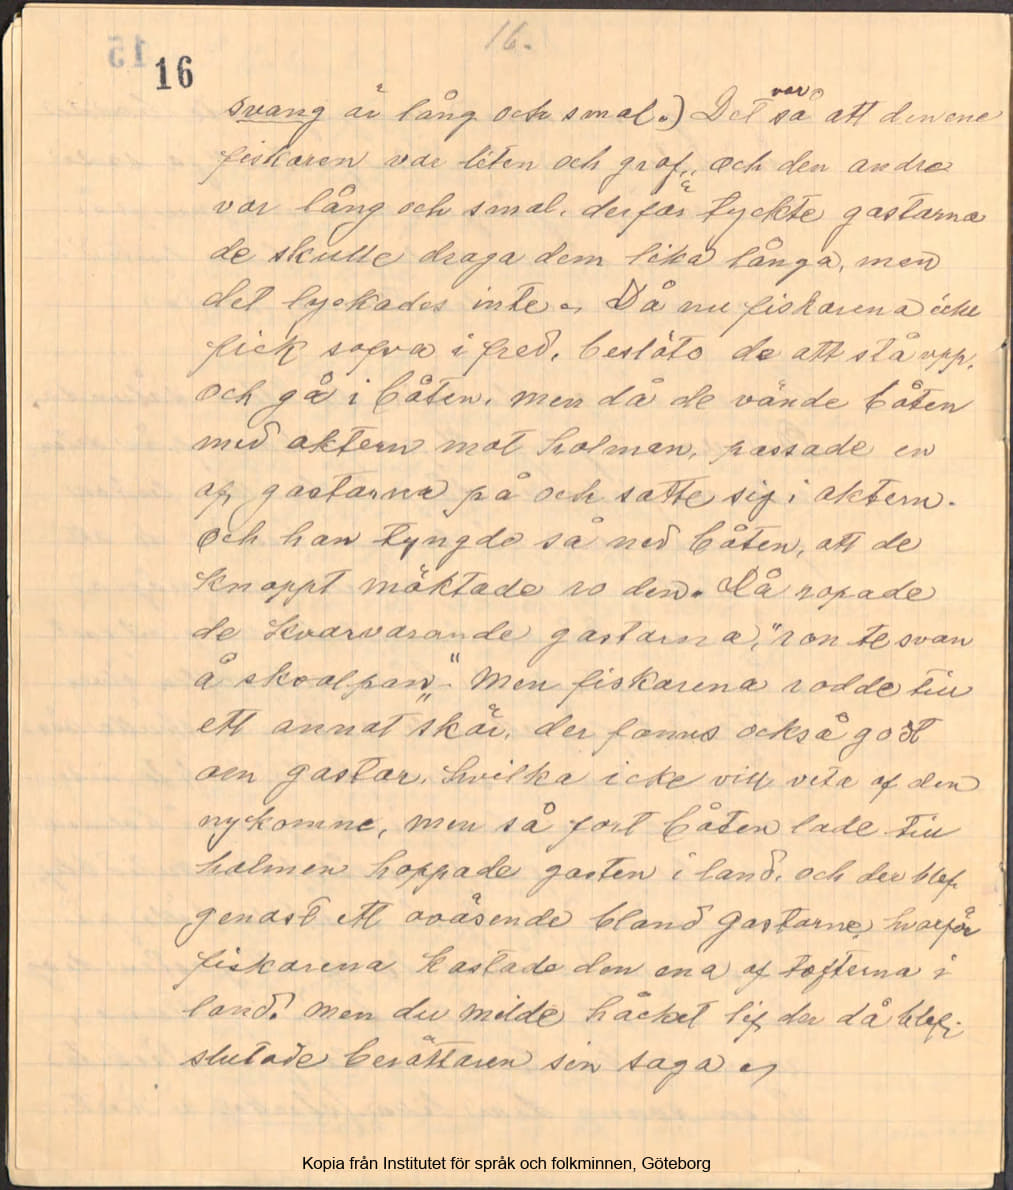 16.
15
16
svang är lång och smal.) Det var så att den ene
fiskaren var liten och grof, och den andre
var lång och smal, derför tyckte gastarna
de skulle draga dem lika långa, men
det lyckades inte. Då nu fiskarena icke
fick sofva i fred, beslöto de att stå opp,
och gå i båten, men då de vände båten
med aktern mot holmen, passade en
af gastarna på och satte sig i aktern.
Och han tyngde så ned båten, att de
knappt mäktade ro den. Då ropade
de kvarvarande gastarna, "ron te svan
å skvalpan". Men fiskarena rodde till
ett annat skär, der fanns också godt
om gastar, hvilka icke vill veta af den
nykomne, men så fort båten lade till
holmen hoppade gasten i land, och der blef
genast ett oväsende bland gastarne, hvarför
fiskarena kastade den ena af tofterna i
land! men du milde håcket lif der då blef,
slutade berättaren sin saga
Kopia från Institutet för språk och folkminnen, Göteborg